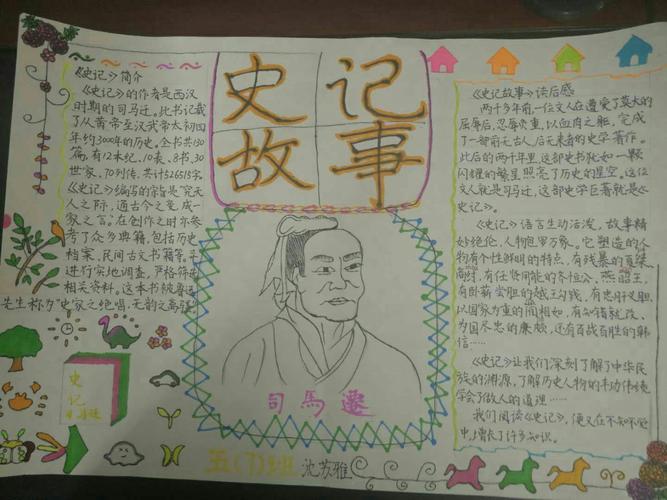 史记
故事
《史记》简介
《史记》的作者是西汉
时期的司马迁。此书记载
了从黄帝至汉武帝太初四
年约3000年的历史。全书共130
篇,有12本纪、10表、8书、30
世家、70列传,共计526515字。
《史记》编写的宗旨是"究天
人之际,通古今之变,成一
家之言。在创作之时亦参
考了众多典籍,包括历史
档案、民间古文书籍等,并
进行实地调查,严格筛选
相关资料。这本书被鲁迅
先生称为"史家之绝唱,无韵之离骚"
史
记
司马迁
司馬遷
五(7)班 沈苏雅
《史记故事》读后感
两千多年前,一位文人在遭受了莫大的
屈辱后,忍辱负重,以血肉之躯,完成
了一部前无古人,后无来者的史学著作。
此后的两千年里,这部史书犹如一颗
闪耀的繁星照亮了历史的星空。这位
文人就是司马迁,这部史学巨著就是《
史记》。
《史记》语言生动活泼,故事精
妙绝伦,人物包罗万象。它塑造的人
物有个性鲜明的特点,有残暴的夏桀、
商纣,有任贤用能的齐桓公、燕昭王,
有卧薪尝胆的越王勾践,有忠肝义胆,
以国家为重的蔺相如,有知错就改、
为国尽忠的廉颇,还有百战百胜的韩
信……
《史记》让我们深刻了解了中华民
族的渊源,了解历史人物的丰功伟绩
学会了做人的道理……
我们阅读《史记》,便又在不知不觉
中,增长了许多知识。